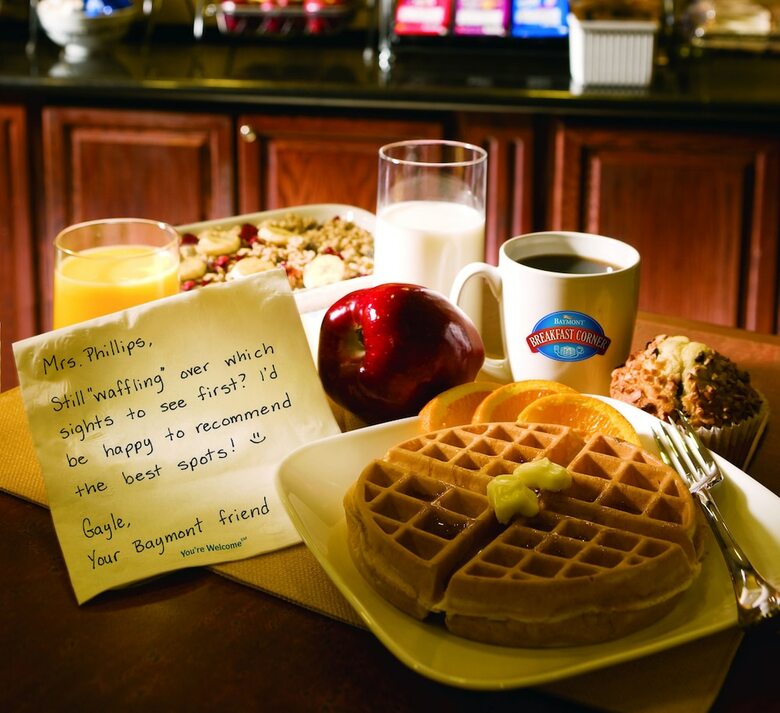 Mrs. Phillips,
Still "waffling" over which
sights to see first? I'd
be happy to recommend
the best spots! :)
Gayle,
Your Baymont friend
You're Welcome℠
BAYMONT
BREAKFAST CORNER